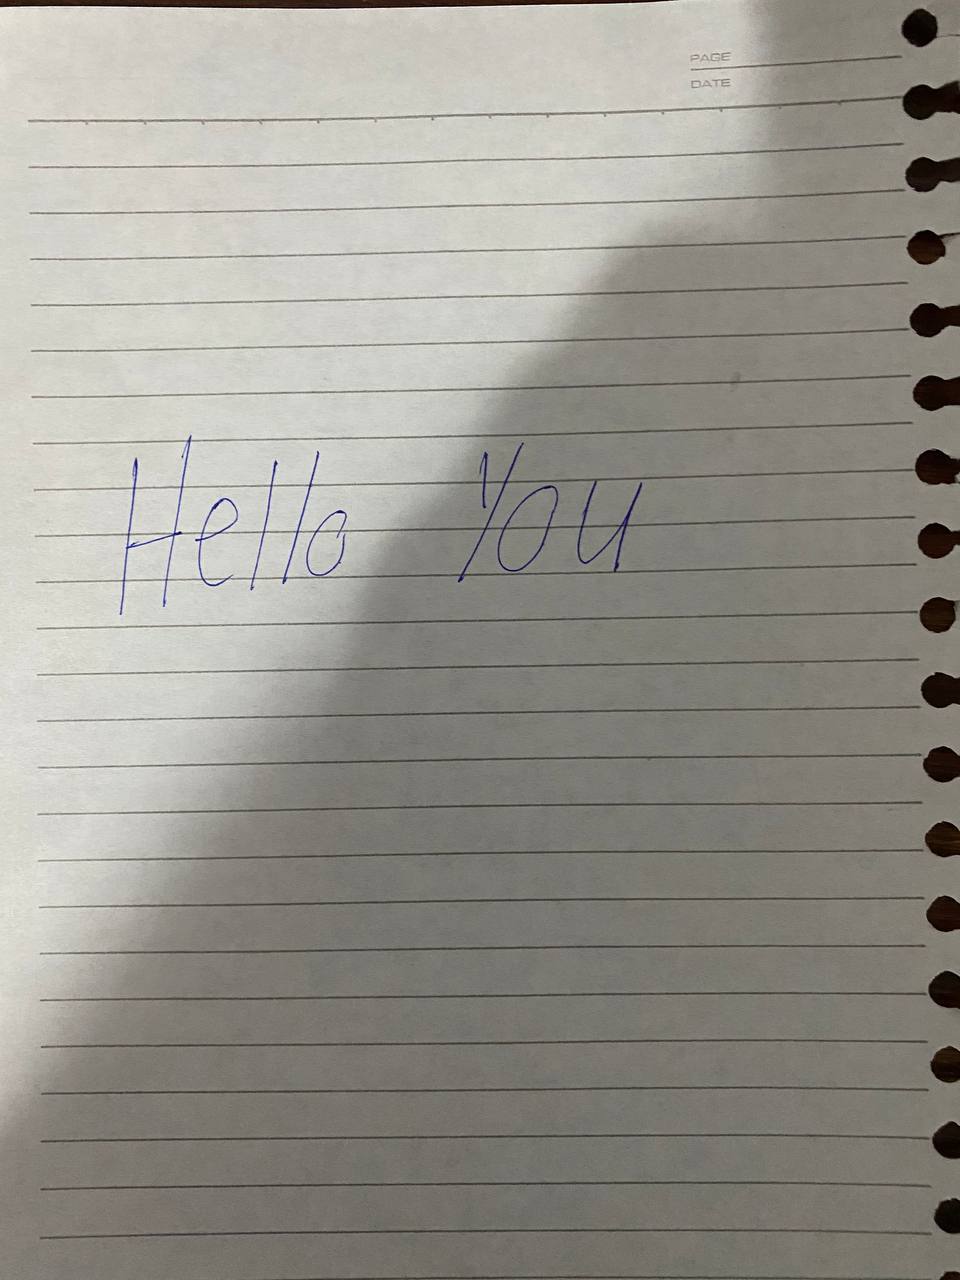 PAGE
DATE
Hello You